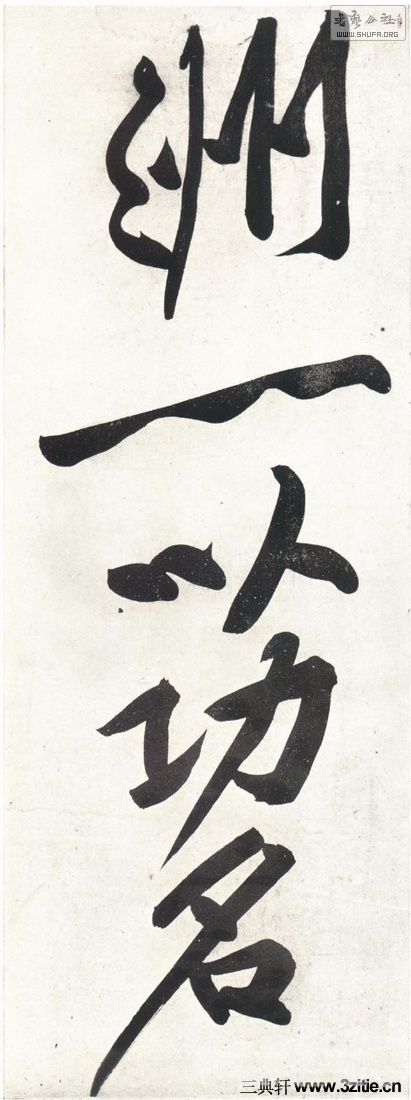 书艺公社
WWW.SHUFA.ORG
洲
一
以
功
名
三典轩 www.3zitie.cn